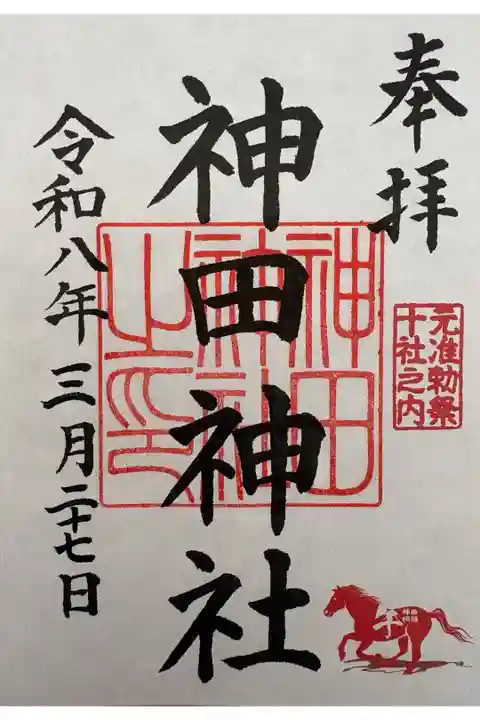 奉拝
元准勅祭
十社之内
午
神田神社
神田
神社
之印
令和八年三月二十七日